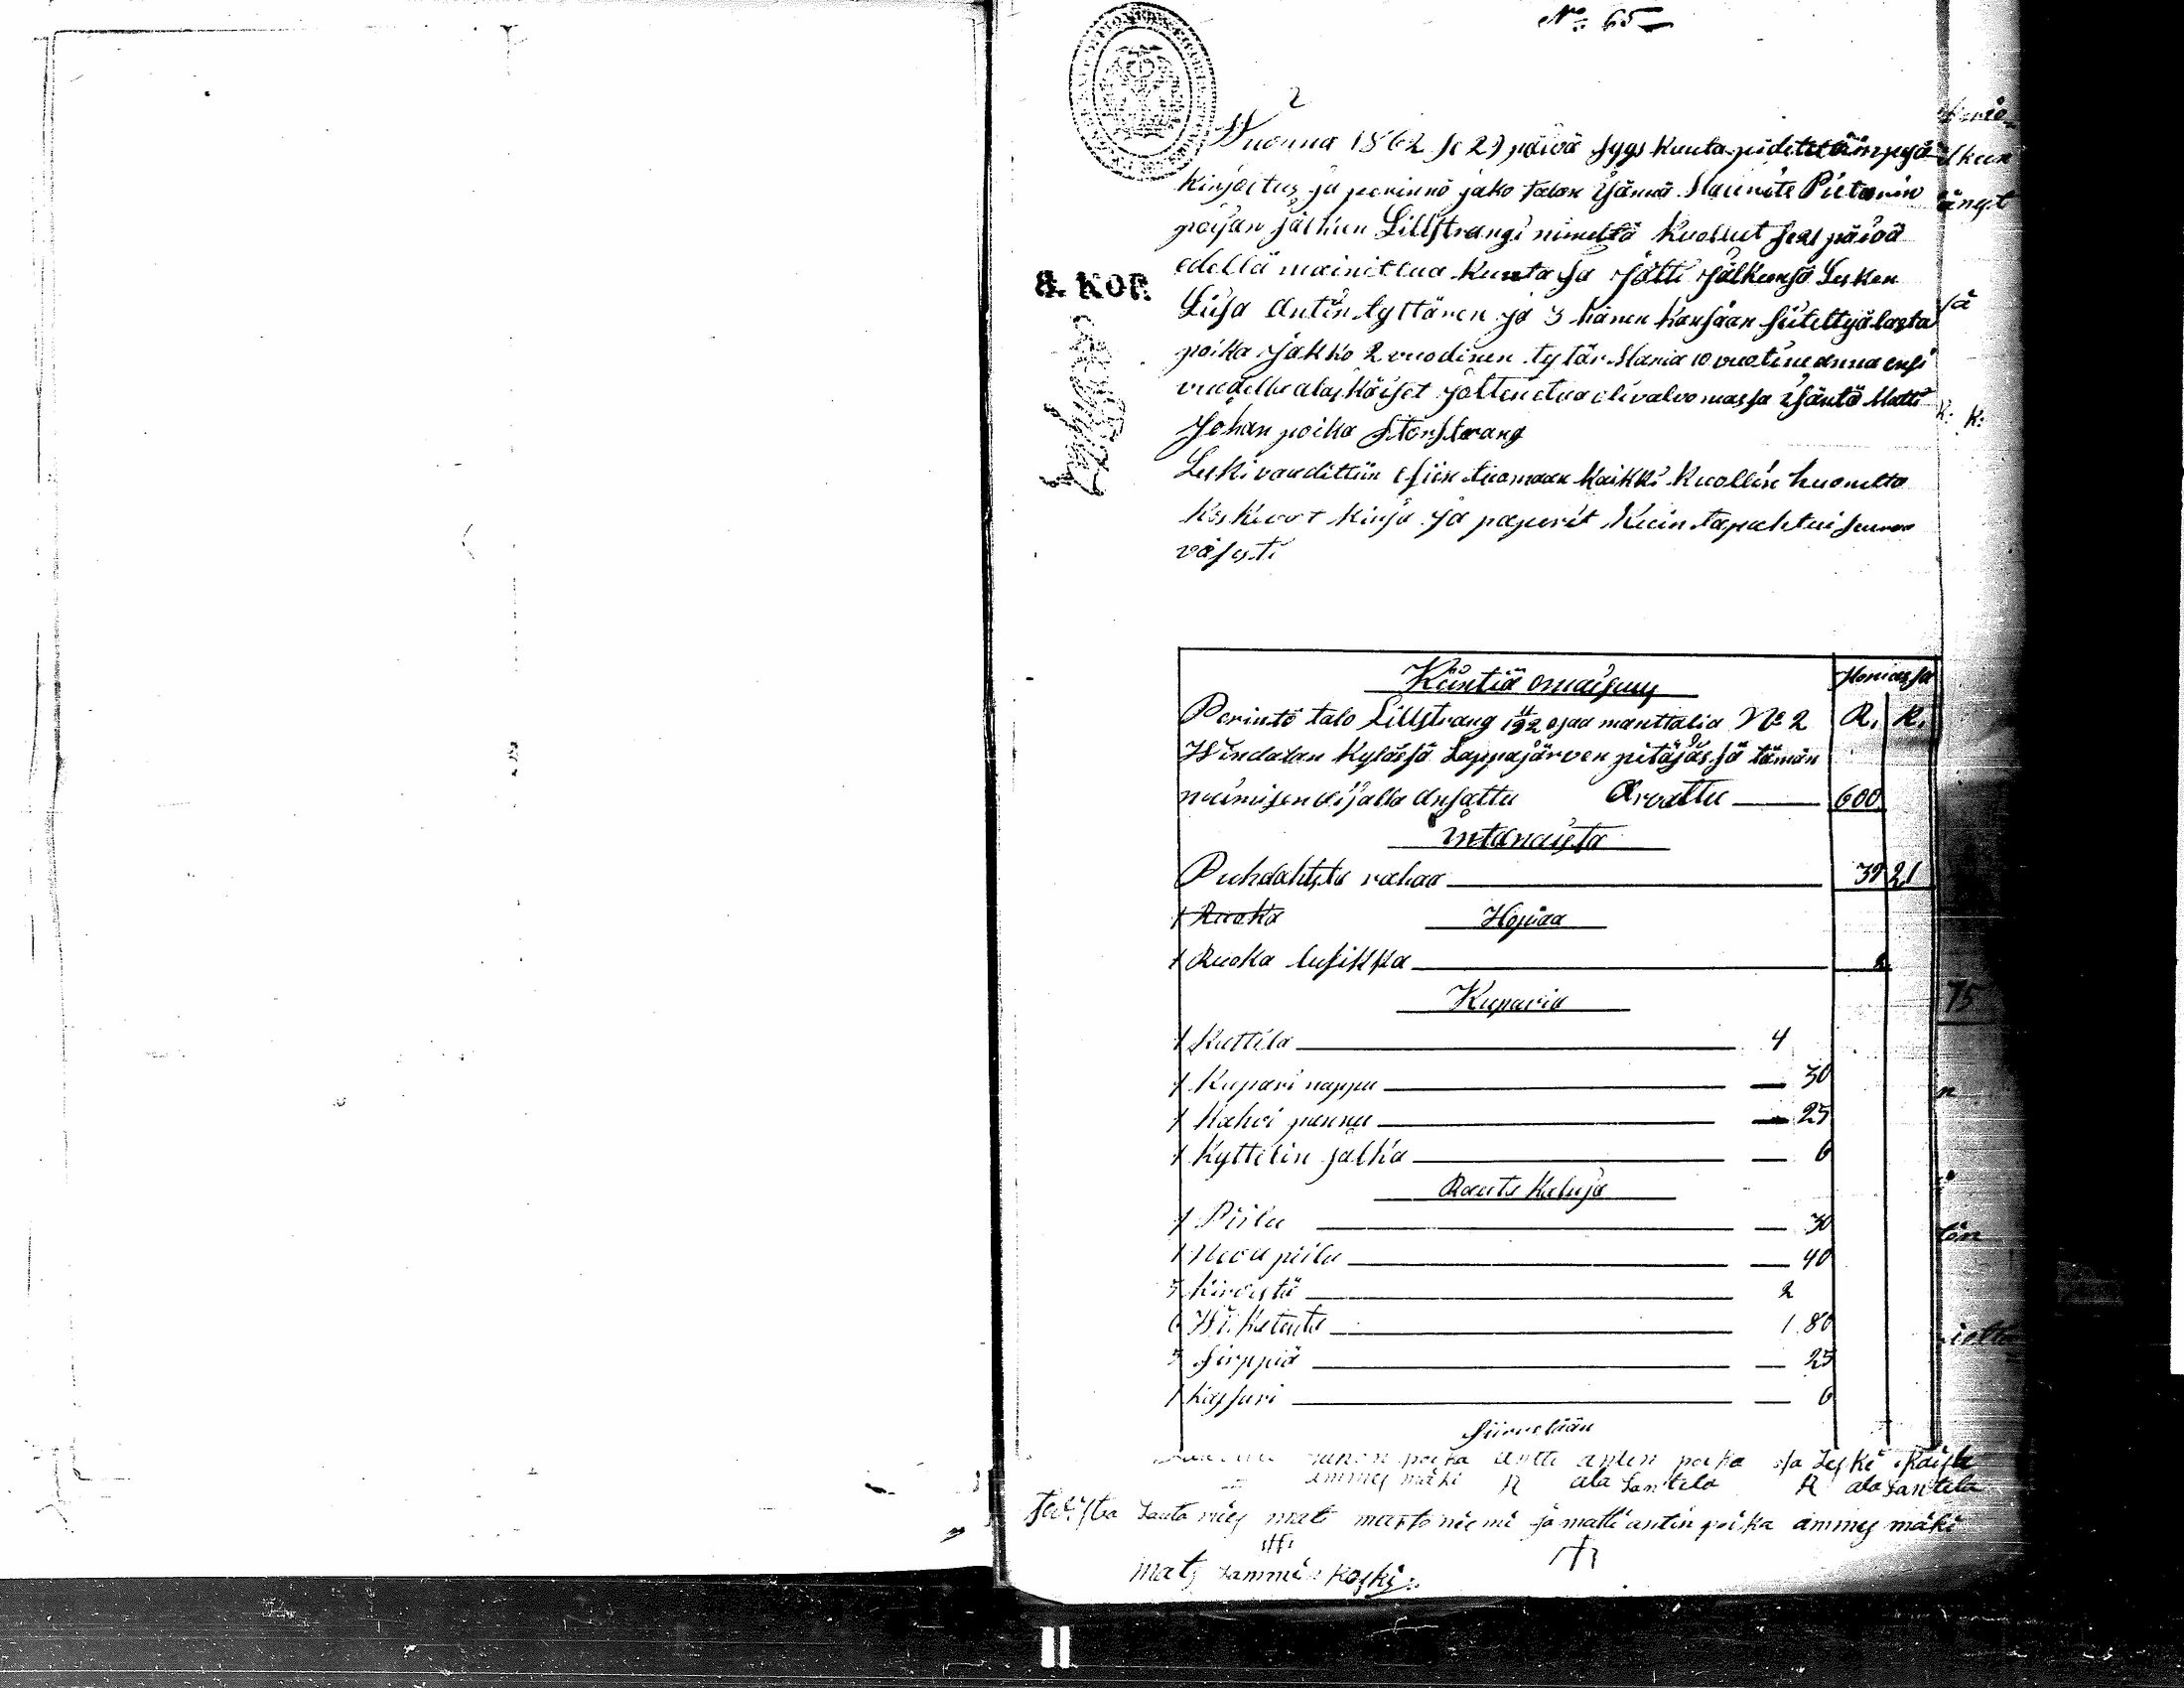 No: 65
2
Wuonna 1862 se 29 päivä syys kuuta pidettiin pesä
kirjoitus ja perinnö jako talon isännä Mauritz Pietarin
poisan jälkeen Lillstrangi nimeltä kuollut se 21 päivä
edellä mainittua kuuta ja jätti jälkensä Lesken
Liisa Antin tyttären ja 3 hänen kansaan siitettyä lasta
poika Jakko 2 vuodinen tytär Maria 10 vuotine anna ensi
vuodella alaskäiset joitten etua oli valvomassa isäntö Matti
Johan poika Storstrang
8. KOP.
Leski vaadittiin esiin tuomaan kaikki kuollen huonetta
koskevat kirja ja paperit kuin tapahtui seuraa
väisesti
Kiintiä omaisuus
Hopiassa
Perintö talo Lillstrang 11/192 osaa manttalia No 2 R. K.
Windalan kylässä Lappajärven pitäjässä tämän
nuimisen aijalla ansattu Arvattu 600
intanaista
Puhdahtsta rahaa 39 21
1 Ruoka Hopiaa
1 Ruoka lusikka
Kuparia
1 Kattila 4
1 Kupari nappu — 30
1 Kahvi pannu — 25
1 Kyttelin jalka — 6
Rauta Kaluja
1 Piilu — 30
1 piilu — 40
5 Kirvestä 2
6 Wi Katetta 1 80
5 Sirppiä — 25
1 Kassari — 6
Siirretään
poika Antti anten poika ja Leski Kaisa
ammes mäki R ala Lantela R ala Lantela
Lauta mies mati marto niemi ja matti antin poika ammes mäki
mats Lammi koski